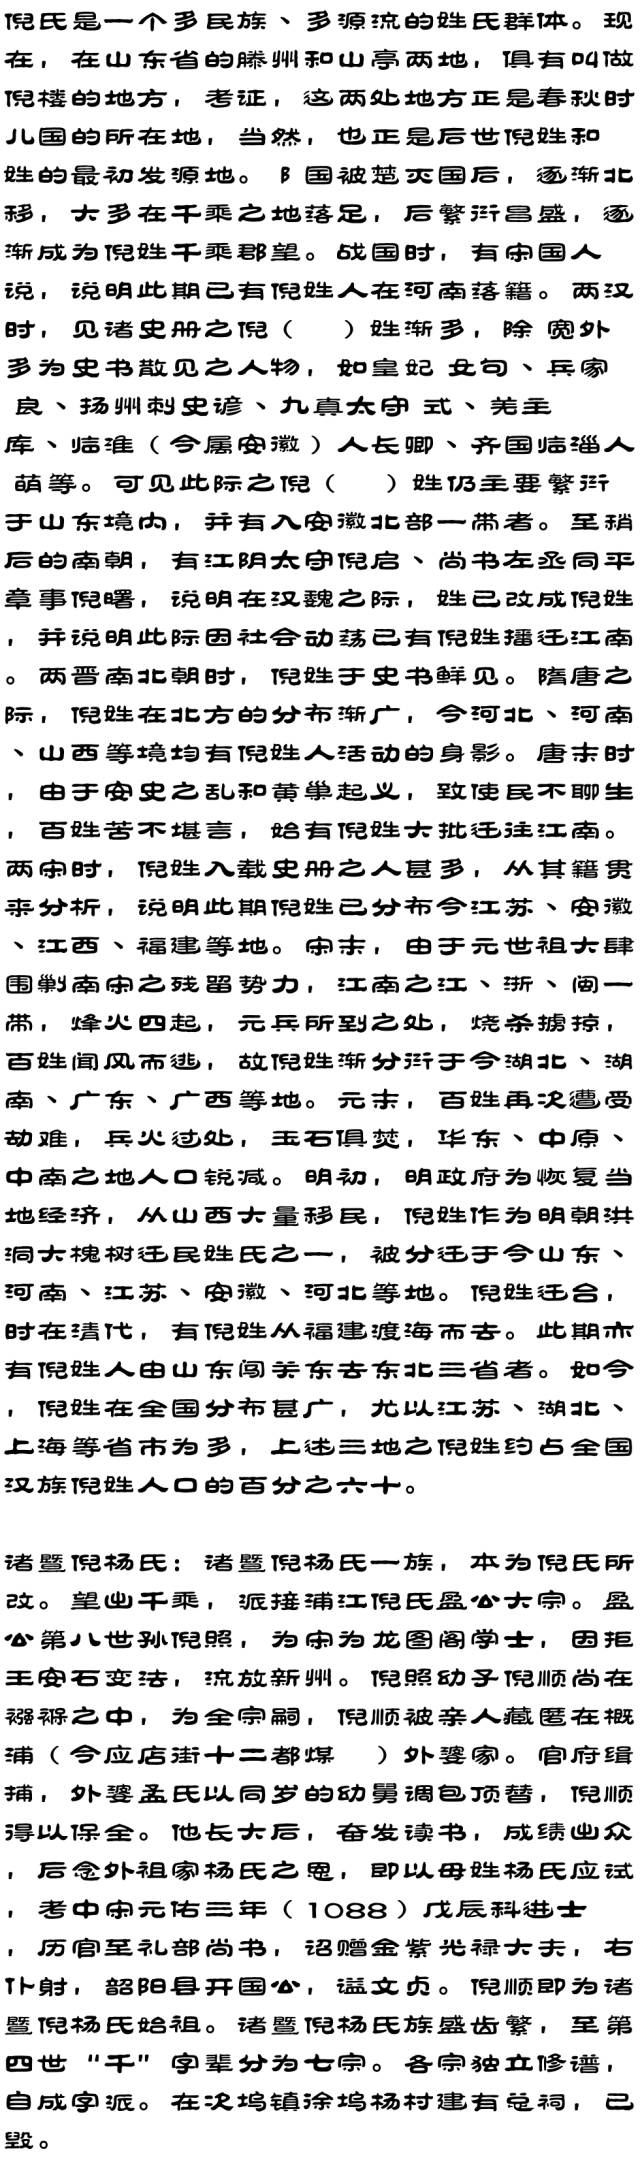 倪氏是一个多民族、多源流的姓氏群体。现
在，在山东省的滕州和山亭两地，俱有叫做
倪楼的地方，考证，这两处地方正是春秋时
儿国的所在地，当然，也正是后世倪姓和
姓的最初发源地。阝国被楚灭国后，逐渐北
移，大多在千乘之地落足，后繁衍昌盛，逐
渐成为倪姓千乘郡望。战国时，有宋国人
说，说明此期已有倪姓人在河南落籍。两汉
时，见诸史册之倪（　）姓渐多，除 宽外
多为史书散见之人物，如皇妃 女句、兵家
良、扬州刺史谚、九真太守 式、羌主
库、临淮（今属安徽）人长卿、齐国临淄人
萌等。可见此际之倪（　）姓仍主要繁衍
于山东境内，并有入安徽北部一带者。至稍
后的南朝，有江阴太守倪启、尚书左丞同平
章事倪曙，说明在汉魏之际，姓已改成倪姓
，并说明此际因社会动荡已有倪姓播迁江南
。两晋南北朝时，倪姓于史书鲜见。隋唐之
际，倪姓在北方的分布渐广，今河北、河南
、山西等境均有倪姓人活动的身影。唐末时
，由于安史之乱和黄巢起义，致使民不聊生
，百姓苦不堪言，始有倪姓大批迁往江南。
两宋时，倪姓入载史册之人甚多，从其籍贯
来分析，说明此期倪姓已分布今江苏、安徽
、江西、福建等地。宋末，由于元世祖大肆
围剿南宋之残留势力，江南之江、浙、闽一
带，烽火四起，元兵所到之处，烧杀掳掠，
百姓闻风而逃，故倪姓渐分衍于今湖北、湖
南、广东、广西等地。元末，百姓再次遭受
劫难，兵火过处，玉石俱焚，华东、中原、
中南之地人口锐减。明初，明政府为恢复当
地经济，从山西大量移民，倪姓作为明朝洪
洞大槐树迁民姓氏之一，被分迁于今山东、
河南、江苏、安徽、河北等地。倪姓迁台，
时在清代，有倪姓从福建渡海而去。此期亦
有倪姓人由山东闯关东去东北三省者。如今
，倪姓在全国分布甚广，尤以江苏、湖北、
上海等省市为多，上述三地之倪姓约占全国
汉族倪姓人口的百分之六十。
诸暨倪杨氏：诸暨倪杨氏一族，本为倪氏所
改。望出千乘，派接浦江倪氏盈公大宗。盈
公第八世孙倪照，为宋为龙图阁学士，因拒
王安石变法，流放新州。倪照幼子倪顺尚在
襁褓之中，为全宗嗣，倪顺被亲人藏匿在概
浦（今应店街十二都煤　）外婆家。官府缉
捕，外婆孟氏以同岁的幼舅调包顶替，倪顺
得以保全。他长大后，奋发读书，成绩出众
，后念外祖家杨氏之恩，即以母姓杨氏应试
，考中宋元佑三年（1088）戊辰科进士
，历官至礼部尚书，诏赠金紫光禄大夫，右
仆射，韶阳县开国公，谥文贞。倪顺即为诸
暨倪杨氏始祖。诸暨倪杨氏族盛齿繁，至第
四世“千”字辈分为七宗。各宗独立修谱，
自成字派。在次坞镇徐坞杨村建有总祠，已
毁。